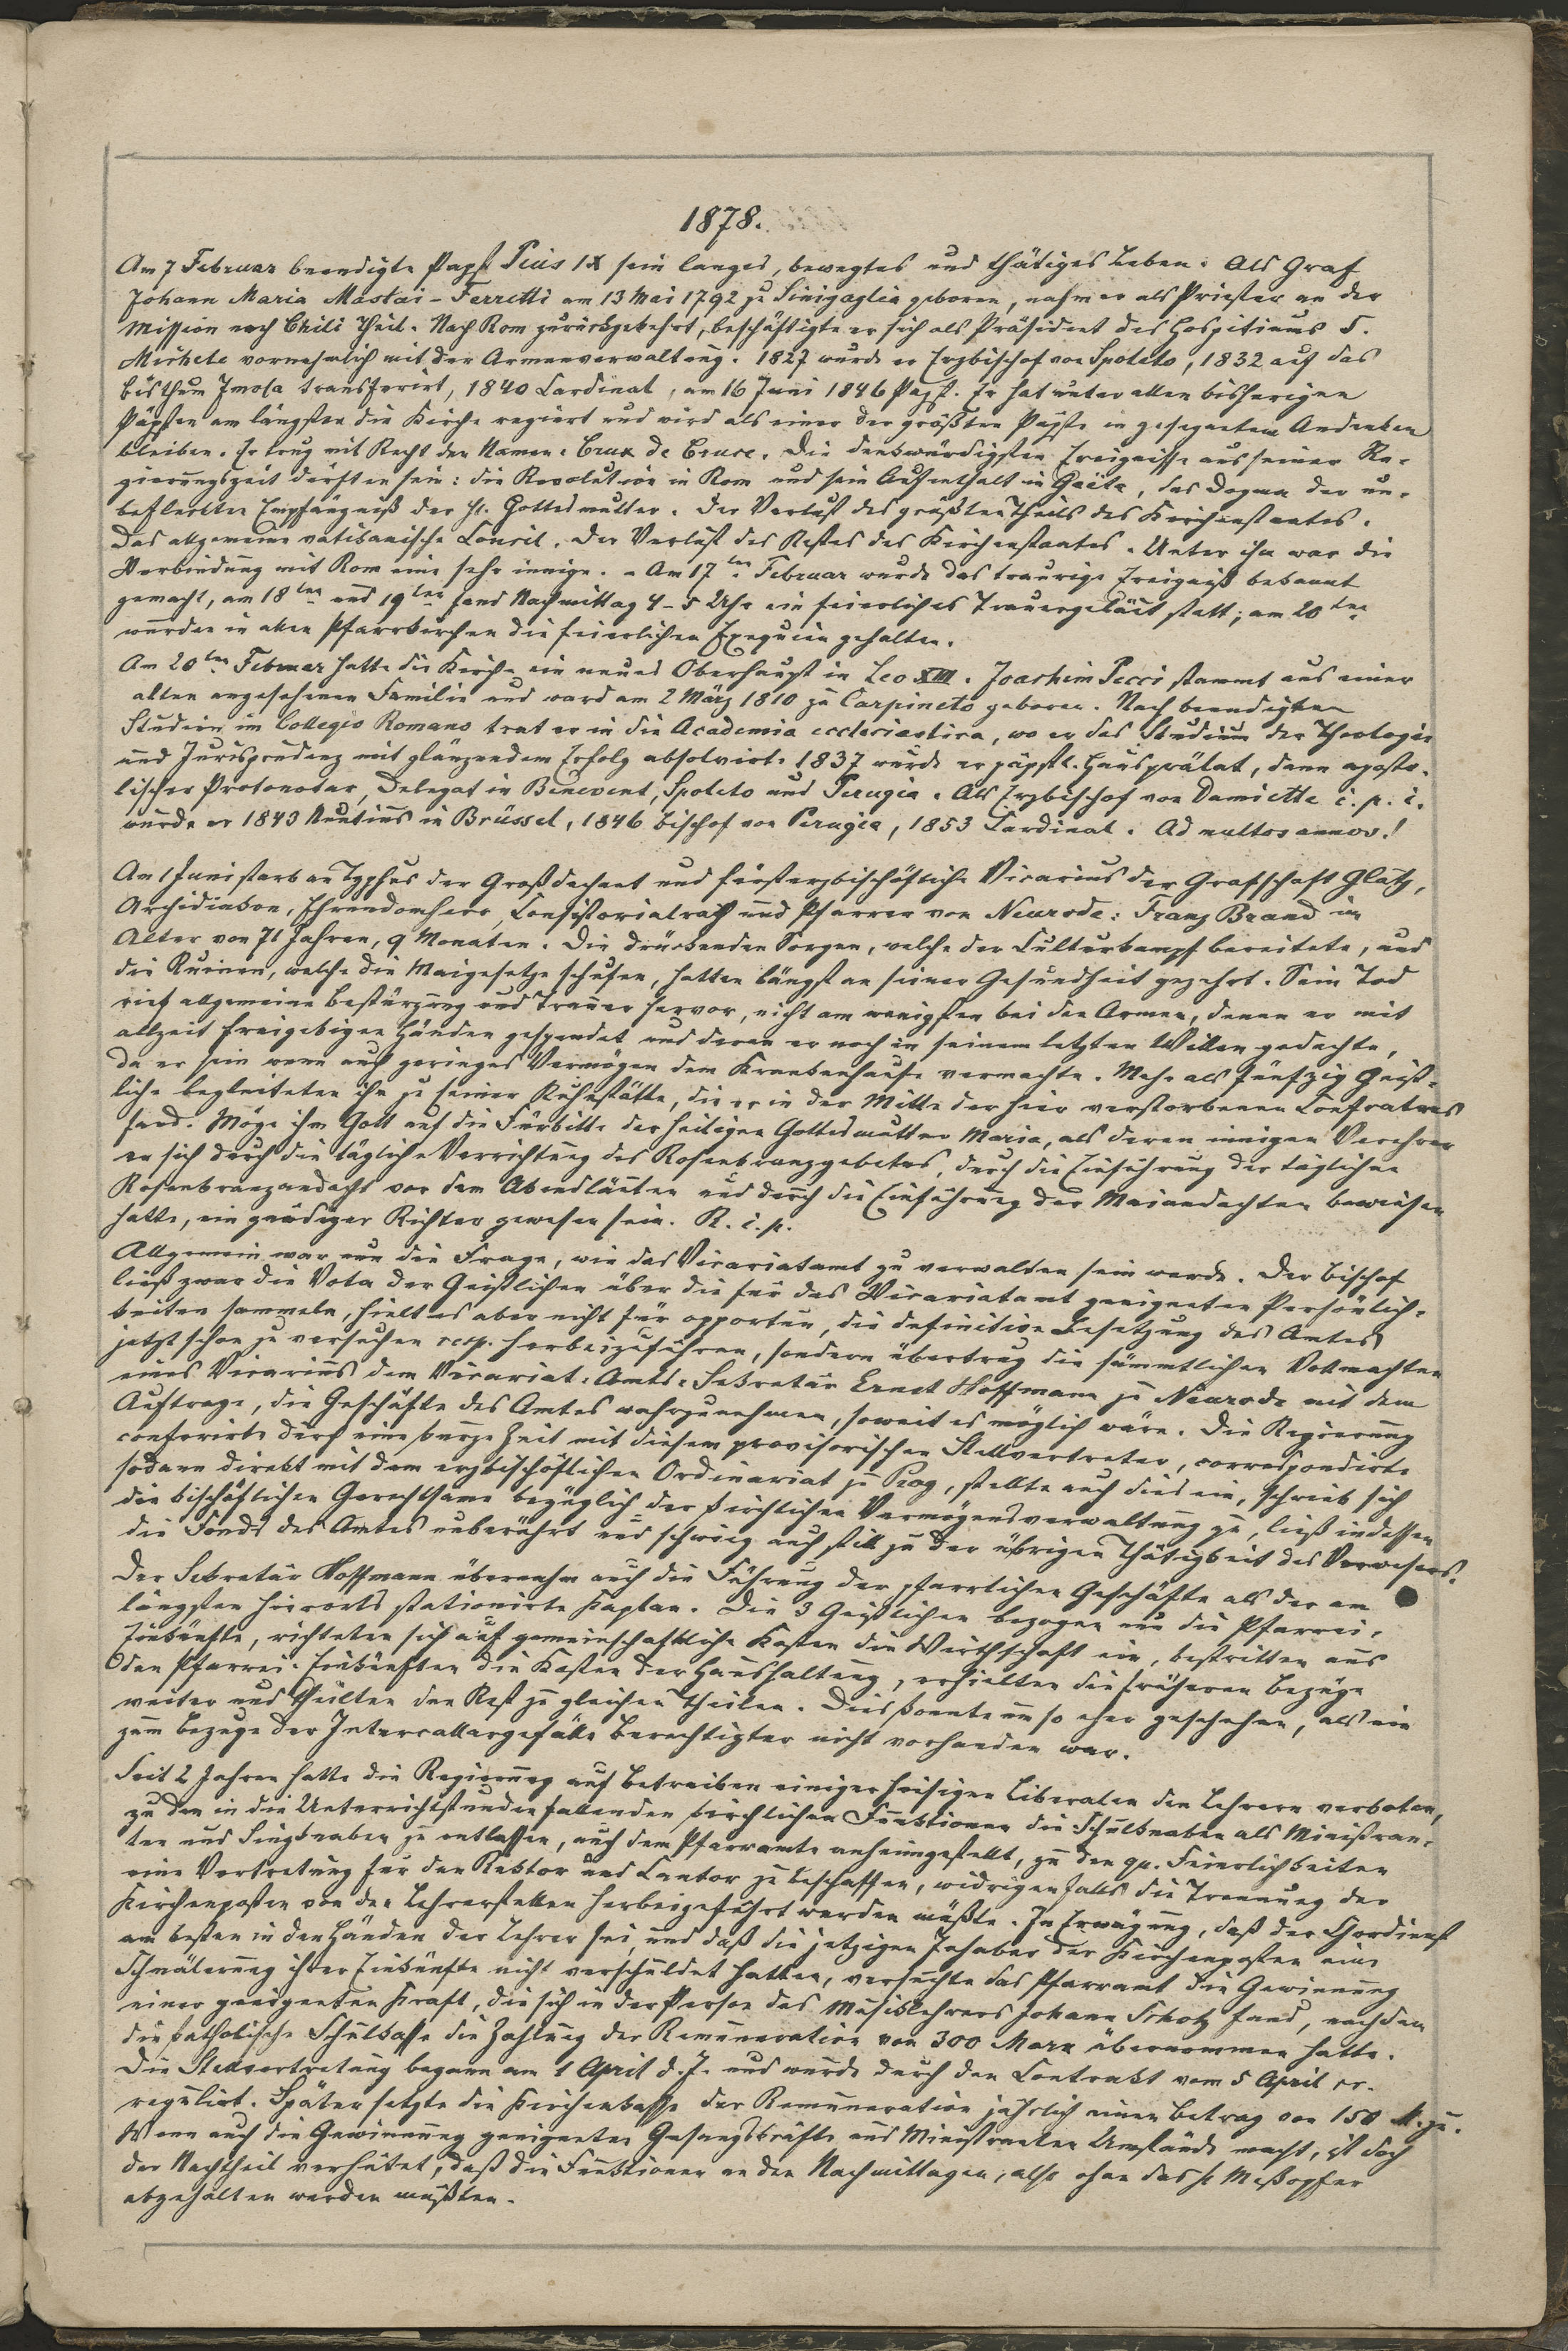 1878.
Am 7 Februar beendigte Papst Pius IX sein langes, bewegtes und thätiges Leben. Als Graf
Johann Maria Mastai-Ferretti am 13 Mai 1792 zu Sinigaglia geboren, nahm er als Priester an der
Mission nach Chili Theil. Nach Rom zurückgekehrt, beschäftigte er sich als Präsident des Hospitiums S.
Michele vornehmlich mit der Armenverwaltung. 1827 wurde er Erzbischof von Spoleto, 1832 auf das
Bisthum Imola transferirt, 1840 Cardinal, am 16 Juni 1846 Papst. Er hat unter allen bisherigen
Päpsten am längsten die Kirche regiert und wird als einer der größten Päpste in gesegnetem Andenken
bleiben. Er trug mit Recht den Namen: Crux de Cruce. Die denkwürdigsten Ereignisse aus seiner Re-
gierungszeit dürften sein: die Revolution in Rom und sein Aufenthalt in Gaëta, das Dogma der un-
befleckten Empfängniß der hl. Gottesmutter. Der Verlust des größten Theils des Kirchenstaates.
Das allgemeine vatikanische Concil. Der Verlust des Restes des Kirchenstaates. Unter ihm war die
Verbindung mit Rom eine sehr innige. - Am 17ten Februar wurde das traurige Ereigniß bekannt
gemacht, am 18ten und 19ten fand Nachmittag 4-5 Uhr ein feierliches Trauergeläut statt; am 20ten
wurden in allen Pfarrkirchen die feierlichen Exequien gehalten.
Am 20ten Februar hatte die Kirche ein neues Oberhaupt in Leo XIII. Joachim Pecci stammt aus einer
alten angesehenen Familie und ward am 2 März 1810 zu Carpineto geboren. Nach beendigten
Studien im Collegio Romano trat er in die Academia ecclesiastica, wo er das Studium der Theologie
und Jurisprudenz mit glänzendem Erfolg absolvirte. 1837 wurde er päpstl. Hausprälat, dann aposto-
lischer Protonotar, Delegat in Benevent, Spoleto und Perugia. Als Erzbischof von Damiette i. p. i.
wurde er 1843 Nuntius in Brüssel, 1846 Bischof von Perugia, 1853 Cardinal. Ad multos annos!
Am 1 Juni starb am Typhus der Großdechant und fürsterzbischöfliche Vicarius der Grafschaft Glatz,
Archidiakon, Ehrendomherr, Consistorialrath und Pfarrer von Neurode: Franz Brand im
Alter von 71 Jahren, 9 Monaten. Die drückenden Sorgen, welche der Culturkampf bereitete, und
die Ruinen, welche die Maigesetze schufen, hatten längst an seiner Gesundheit gezehrt. Sein Tod
rief allgemeine Bestürzung und Trauer hervor, nicht am wenigsten bei den Armen, denen er mit
allzeit freigebigen Händen gespendet und deren er noch in seinem letzten Willen gedachte,
da er sein wenn auch geringes Vermögen dem Krankenhause vermachte. Mehr als fünfzig Geist-
liche begleiteten ihn zu seiner Ruhestätte, die er in der Mitte der hier verstorbenen Confratres
fand. Möge ihm Gott auf die Fürbitte der heiligen Gottesmutter Maria, als deren innigen Verehrer
er sich durch die tägliche Verrichtung des Rosenkranzgebetes, durch die Einführung der täglichen
Rosenkranzandacht vor dem Abendläuten und durch die Einführung der Maiandachten bewiesen
hatte, ein gnädiger Richter gewesen sein. R. i. p.
Allgemein war nun die Frage, wie das Vicariatamt zu verwalten sein werde. Der Bischof
ließ zwar die Vota der Geistlichen über die für das Vicariatamt geeigneten Persönlich-
keiten sammeln, hielt es aber nicht für opportun, die definitive Besetzung des Amtes
jetzt schon zu versuchen resp. herbeizuführen, sondern übertrug die sämmtlichen Vollmachten
eines Vicarius dem Vicariat-Amts-Sekretär Ernst Hoffmann zu Neurode mit dem
Auftrage, die Geschäfte des Amtes wahrzunehmen, soweit es möglich wäre. Die Regierung
conferirte durch eine kurze Zeit mit diesem provisorischen Stellvertreter, correspondirte
sodann direkt mit dem erzbischöflichen Ordinariat zu Prag, stellte auch dies ein, schrieb sich
die bischöflichen Gerechtsame bezüglich der kirchlichen Vermögensverwaltung zu, ließ indessen
die Fonds des Amtes unberührt und schwieg auch still zu der übrigen Thätigkeit des Verwesers.
Der Sekretär Hoffmann übernahm auch die Führung der pfarrlichen Geschäfte als der am
längsten hierorts stationirte Kaplan. Die 3 Geistlichen bezogen nun die Pfarrei-
Einkünfte, richteten sich auf gemeinschaftliche Kosten die Wirthschaft ein, bestritten aus
den Pfarrei-Einkünften die Kosten der Haushaltung, erhielten die früheren Bezüge
weiter und theilten den Rest zu gleichen Theilen. Dies konnte um so eher geschehen, als ein
zum Bezuge der Intercallargefälle Berechtigter nicht vorhanden war.
Seit 2 Jahren hatte die Regierung auf Betreiben einiger hiesigen Liberalen den Lehrern verboten,
zu den in die Unterrichtstunden fallenden kirchlichen Funktionen die Schulknaben als Ministran-
ten und Singknaben zu entlassen, auch dem Pfarramte anheimgestellt, zu den qu. Feierlichkeiten
eine Vertretung für den Rektor und Cantor zu beschaffen, widrigenfalls die Trennung der
Kirchenposten von den Lehrerstellen herbeigeführt werden müßte. In Erwägung, daß der Chordienst
am besten in den Händen der Lehrer sei, und daß die jetzigen Inhaber der Kirchenposten eine
Schmälerung ihrer Einkünfte nicht verschuldet hatten, versuchte das Pfarramt die Gewinnung
einer geeigneten Kraft, die sich in der Person des Musiklehrers Johann Scholz fand, nachdem
die katholische Schulkasse die Zahlung der Remuneration von 300 Mark übernommen hatte.
Die Stellvertretung begann am 1 April d. J. und wurde durch den Contrakt vom 5 April cr.
regulirt. Später setzte die Kirchenkasse der Remuneration jährlich einen Betrag von 150 M. zu.
Wenn auch die Gewinnung geeigneter Gesangskräfte und Ministranten Umstände macht, ist doch
der Nachtheil verhütet, daß die Funktionen an den Nachmittagen, also ohne das h. Meßopfer
abgehalten werden müßten.